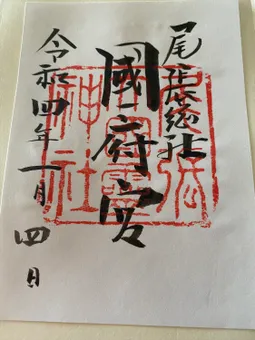 尾張総社
國府宮
令和四年一月四日
神社